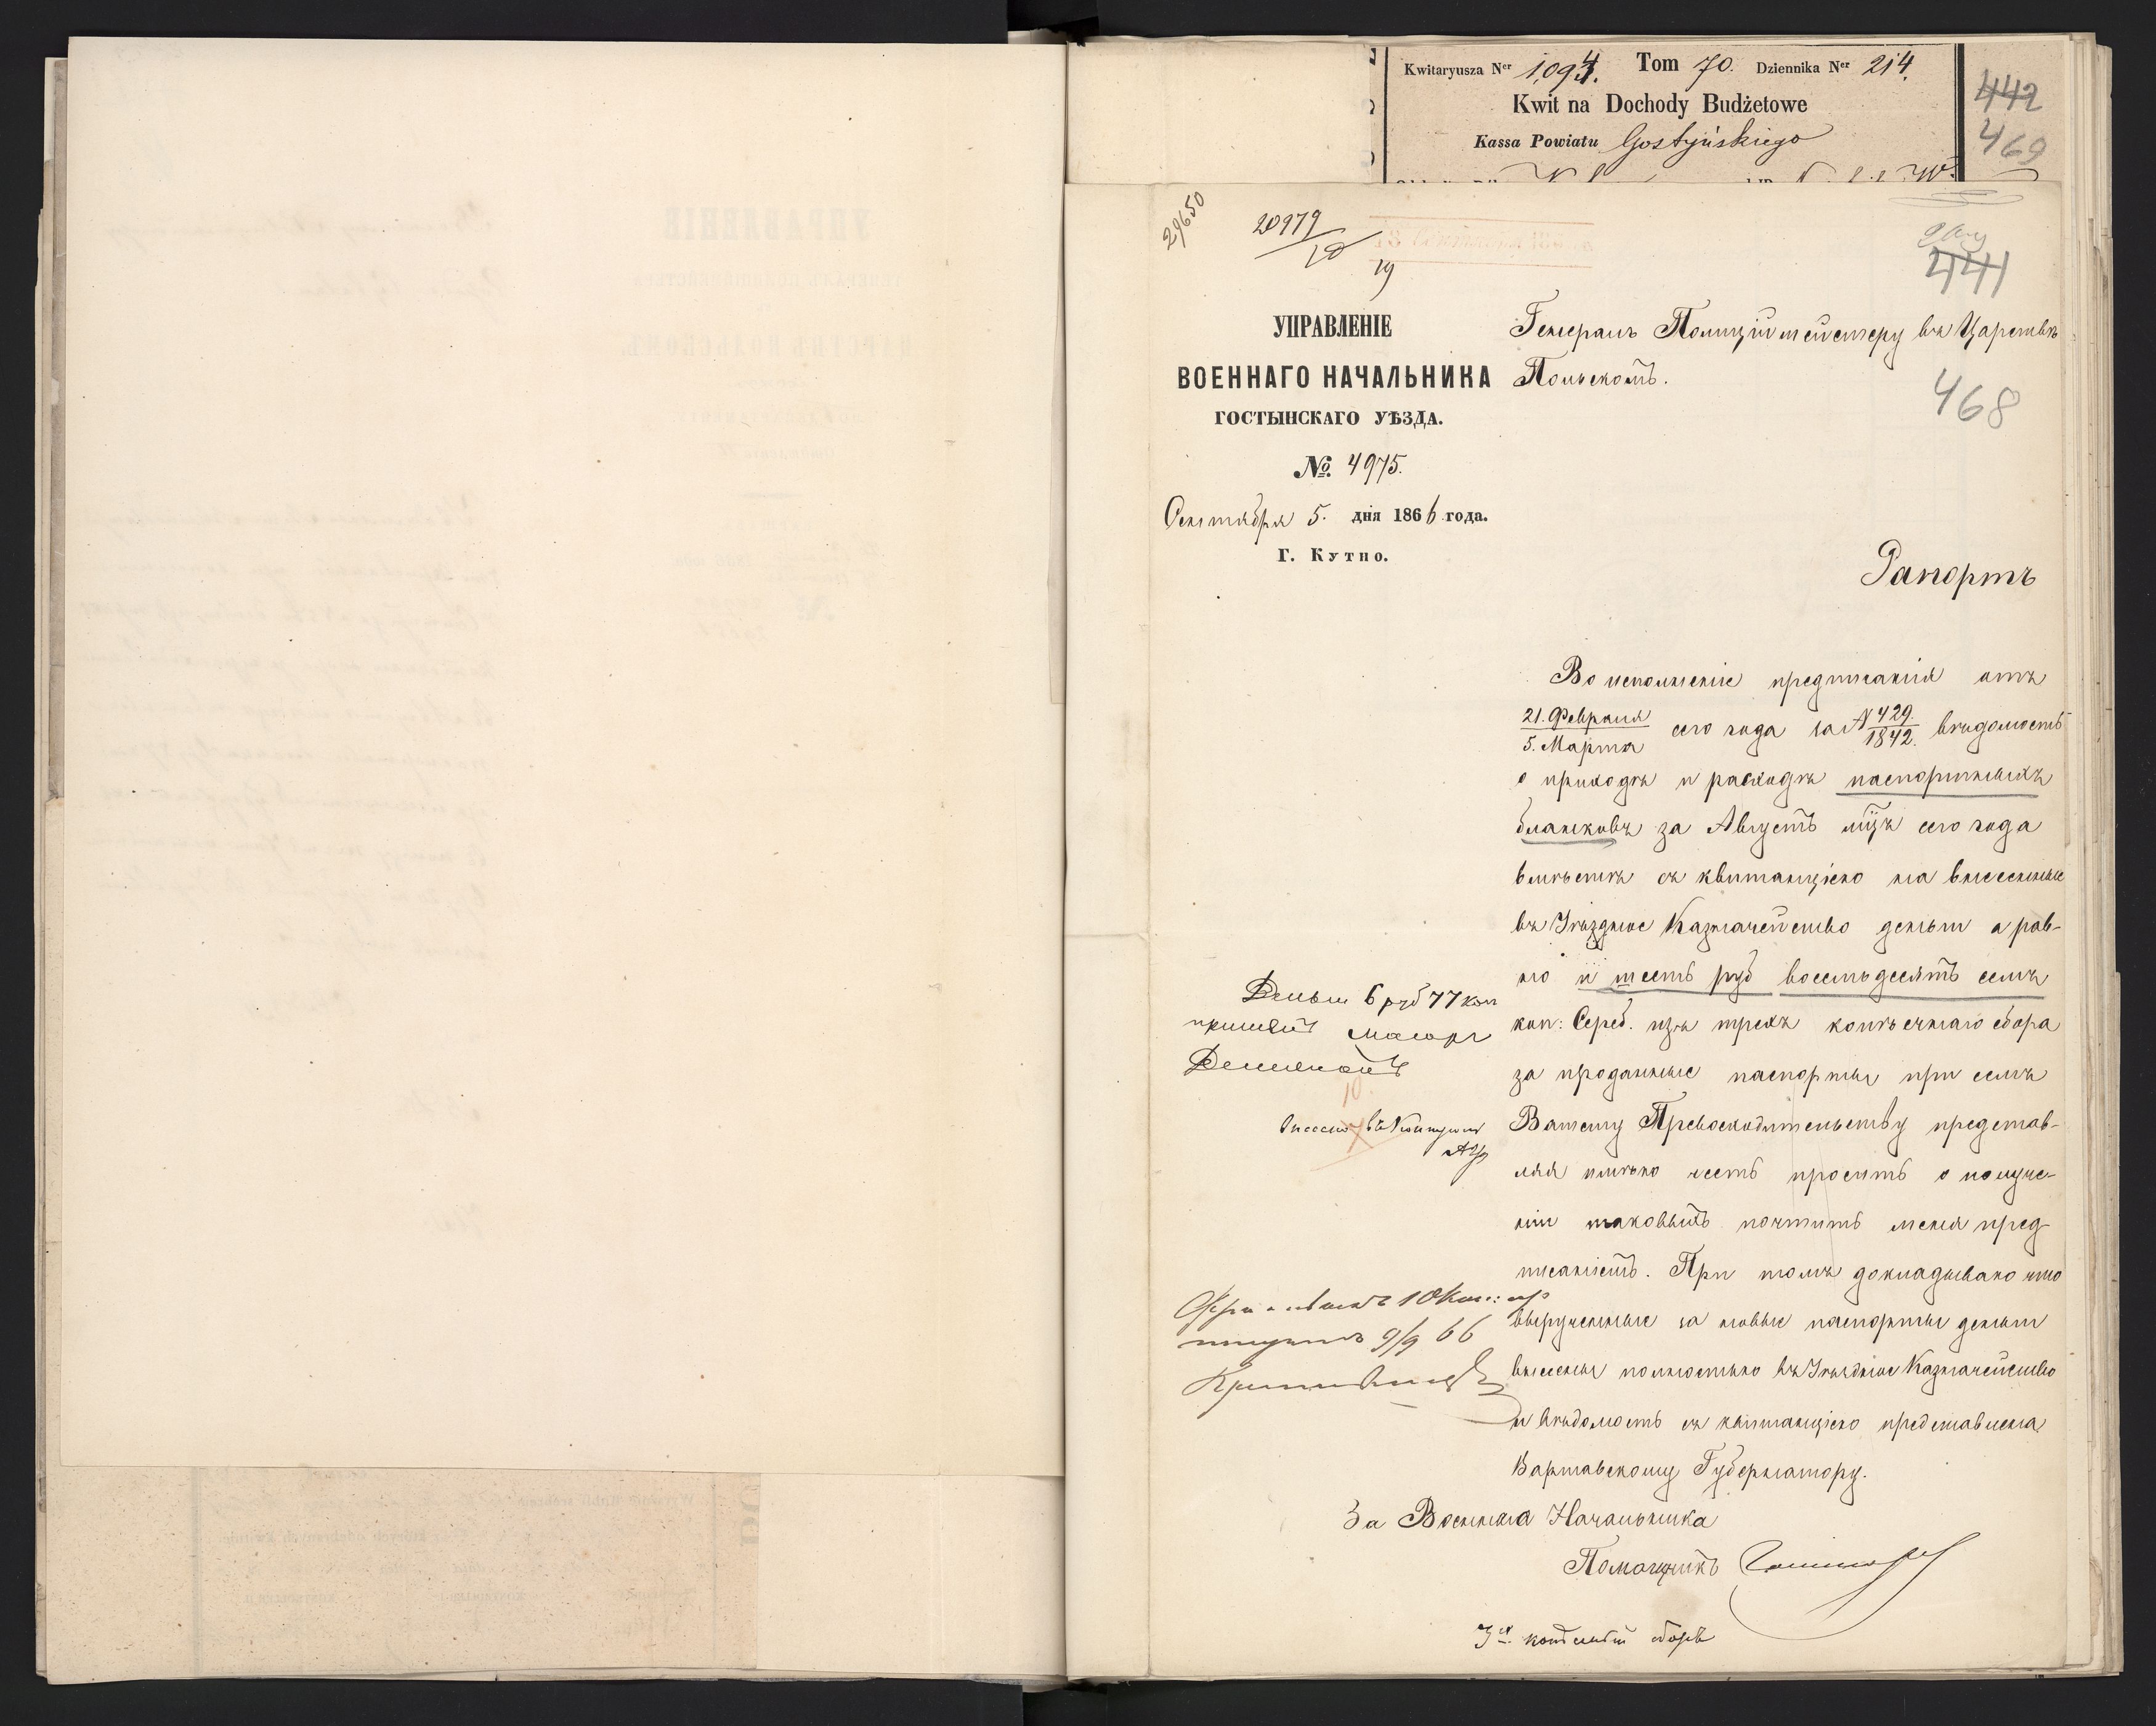 Kwitaryusza Ner 1,094. Tom 70. Dziennika Ner 214.
Kwit na Dochody Budżetowe
Kassa Powiatu Gostyńskiego
442
469
29650
20979
19
441
468
УПРАВЛЕНІЕ
ВОЕННАГО НАЧАЛЬНИКА
ГОСТЫНСКАГО УѢЗДА.
№ 4975.
Сентября 5. дня 1866 года.
Г. Кутно.
Генералъ Полицiймейстеру въ Царствѣ
Польскомъ.
Рапортъ
Во исполненіе предписанія отъ
21. Февраля
5. Марта сего года за № 429/1842. вѣдомость
о приходѣ и расходѣ паспортныхъ
бланковъ за Августъ мцъ сего года
вмѣстѣ съ квитанціею на внесенные
въ Уѣздное Казначейство деньги а рав-
но и шесть руб восемьдесятъ семь
коп: Сереб. изъ трехъ копѣечнаго сбора
за проданные паспорты при семъ
Вашему Превосходительству представ-
ляя имѣю честь просить о получе-
ніи таковыхъ почтить меня пред-
писаніемъ. При томъ докладываю что
вырученные за новые паспорты деньги
внесены полностью въ Уѣздное Казначейство
и вѣдомость съ квитанціею представлена
Варшавскому Губернатору.
За Военнаго Начальника
Помощникъ
Деньги 6 руб 77 коп
принялъ Маіоръ
10.
9/9 66
3х копѣечный сборъ